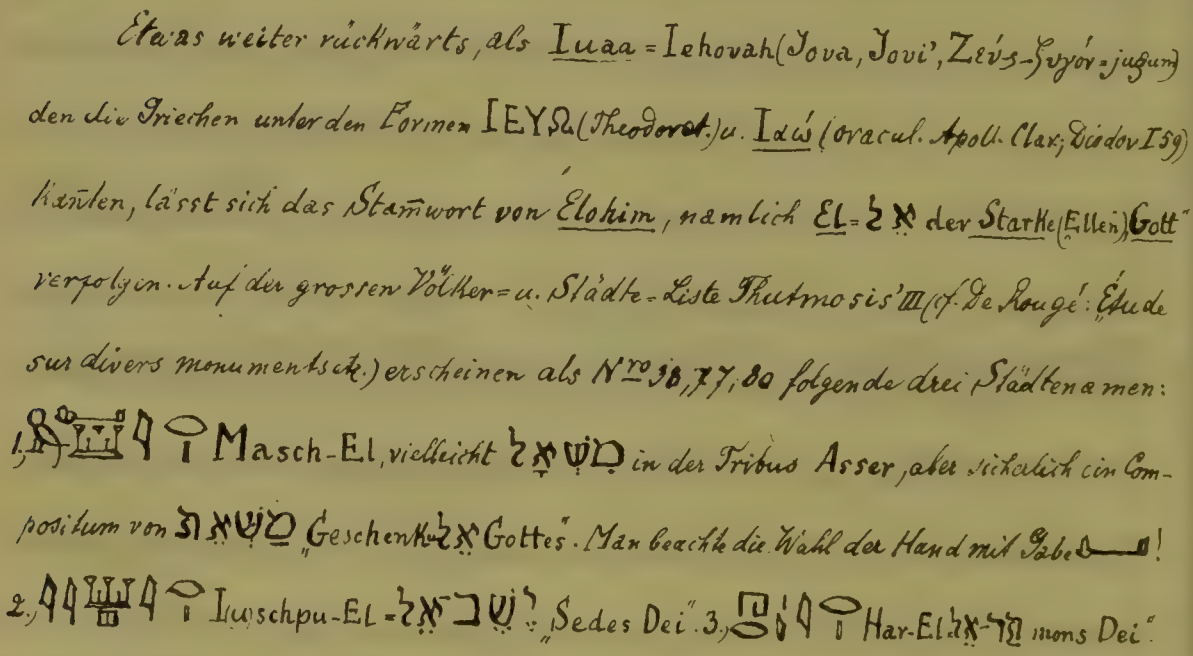 Etwas weiter rückwärts, als Iuaa = Iehovah (Jova, Jovi', Ζεύς-ζυγόν = jugum)
den die Griechen unter den Formen ΙΕΥΩ (Theodoret.) u. Ιαώ (oracul. Apoll. Clar; Diodor I 59)
kan̄ten, lässt sich das Stam̄wort von Élohim, namlich El = אֵל der Starke (Ellen) Gott"
verfolgen. Auf der grossen Völker = u. Städte = Liste Thutmosis' III (cf. De Rougé: „Étude
sur divers monuments etc.) erscheinen als Nro 38, 77, 80 folgende drei Städtenamen:
1., Masch-El, vielleicht מִשְׁאָל in der Tribus Asser, aber sicherlich ein Com-
positum von מַשְׂאֵת „Geschenk אֵל Gottes". Man beachte die Wahl der Hand mit Gabe !
2., Iuschpu-El = יֵשֶׁב־אֵל „Sedes Dei". 3., Har-El הַר־אֵל mons Dei".